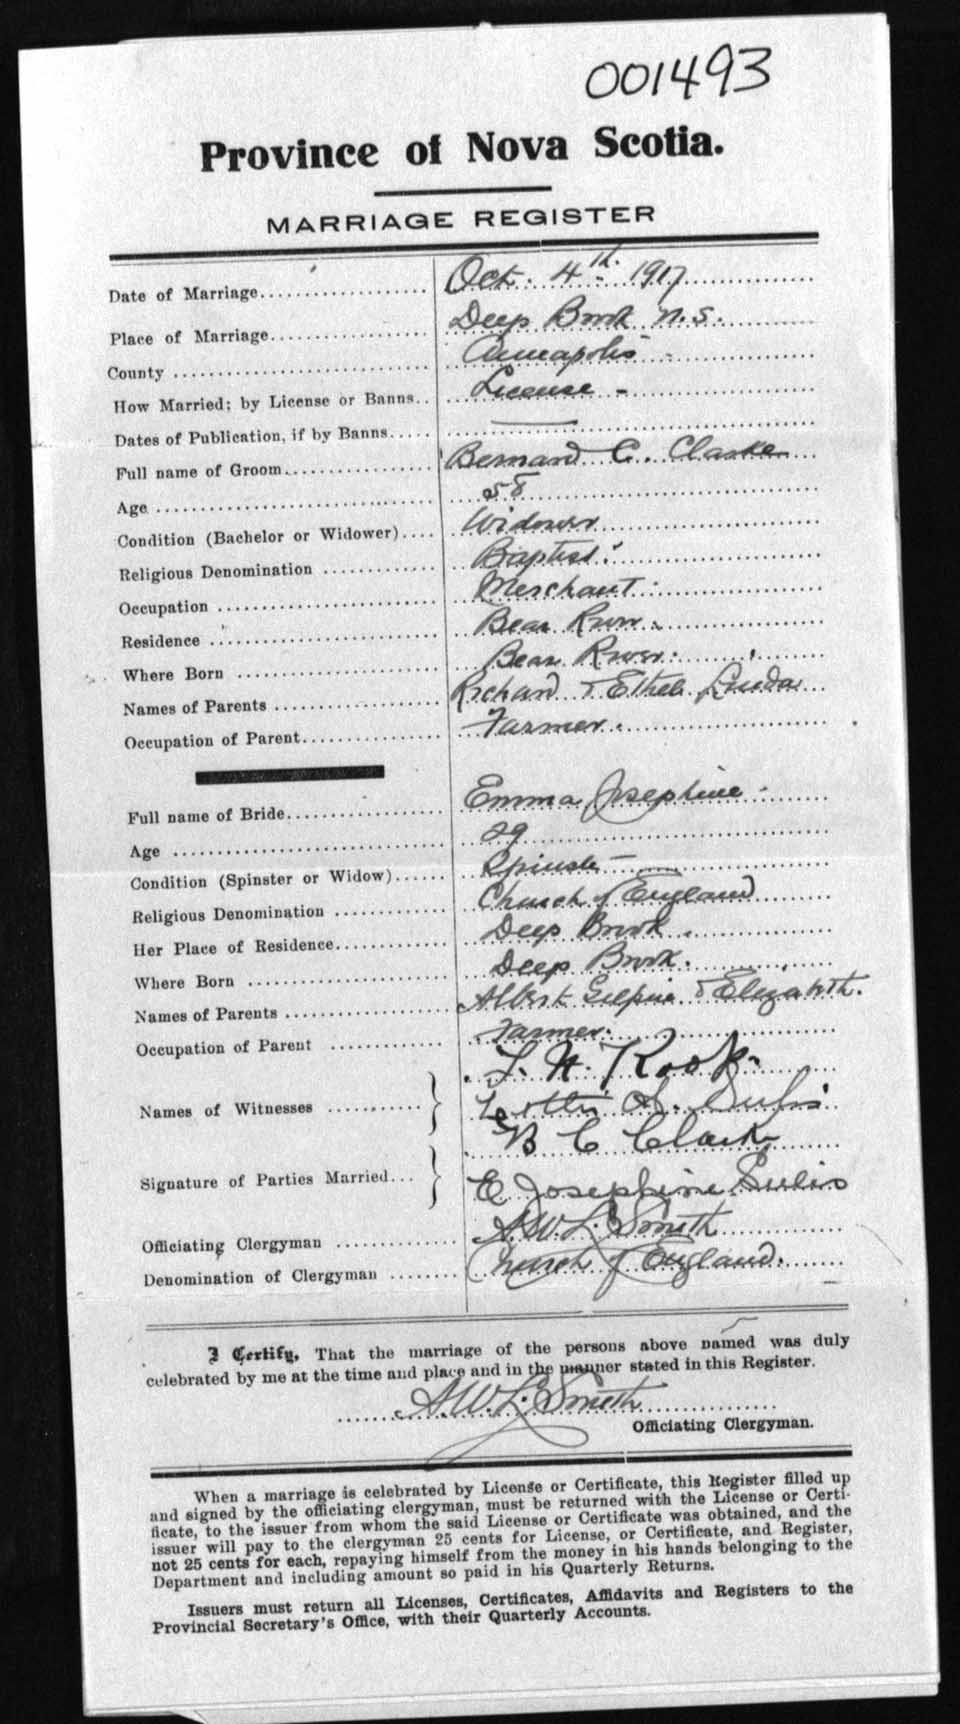 001493
Province of Nova Scotia.
MARRIAGE REGISTER
Date of Marriage Oct. 4th. 1917
Place of Marriage Deep Brook N.S.
County Annapolis
How Married; by License or Banns License -
Dates of Publication, if by Banns
Full name of Groom Bernard C. Clarke
Age 58
Condition (Bachelor or Widower) Widower
Religious Denomination Baptist
Occupation Merchant
Residence Bear River
Where Born Bear River
Names of Parents Richard & Ethel
Occupation of Parent Farmer.
Full name of Bride Emma Josephine
Age 29
Condition (Spinster or Widow) Spinster
Religious Denomination Church of England
Her Place of Residence Deep Brook
Where Born Deep Brook.
Names of Parents Albert Gilpin & Elizabeth.
Occupation of Parent Farmer.
L. H. Rook
Names of Witnesses
A. Sulis
B C Clark
Signature of Parties Married
E Josephine Sulis
Officiating Clergyman A.W.L. Smith
Denomination of Clergyman Church of England.
I Certify, That the marriage of the persons above named was duly
celebrated by me at the time and place and in the manner stated in this Register.
A.W.L. Smith
Officiating Clergyman.
When a marriage is celebrated by License or Certificate, this Register filled up
and signed by the officiating clergyman, must be returned with the License or Certi-
ficate, to the issuer from whom the said License or Certificate was obtained, and the
issuer will pay to the clergyman 25 cents for License, or Certificate, and Register,
not 25 cents for each, repaying himself from the money in his hands belonging to the
Department and including amount so paid in his Quarterly Returns.
Issuers must return all Licenses, Certificates, Affidavits and Registers to the
Provincial Secretary's Office, with their Quarterly Accounts.